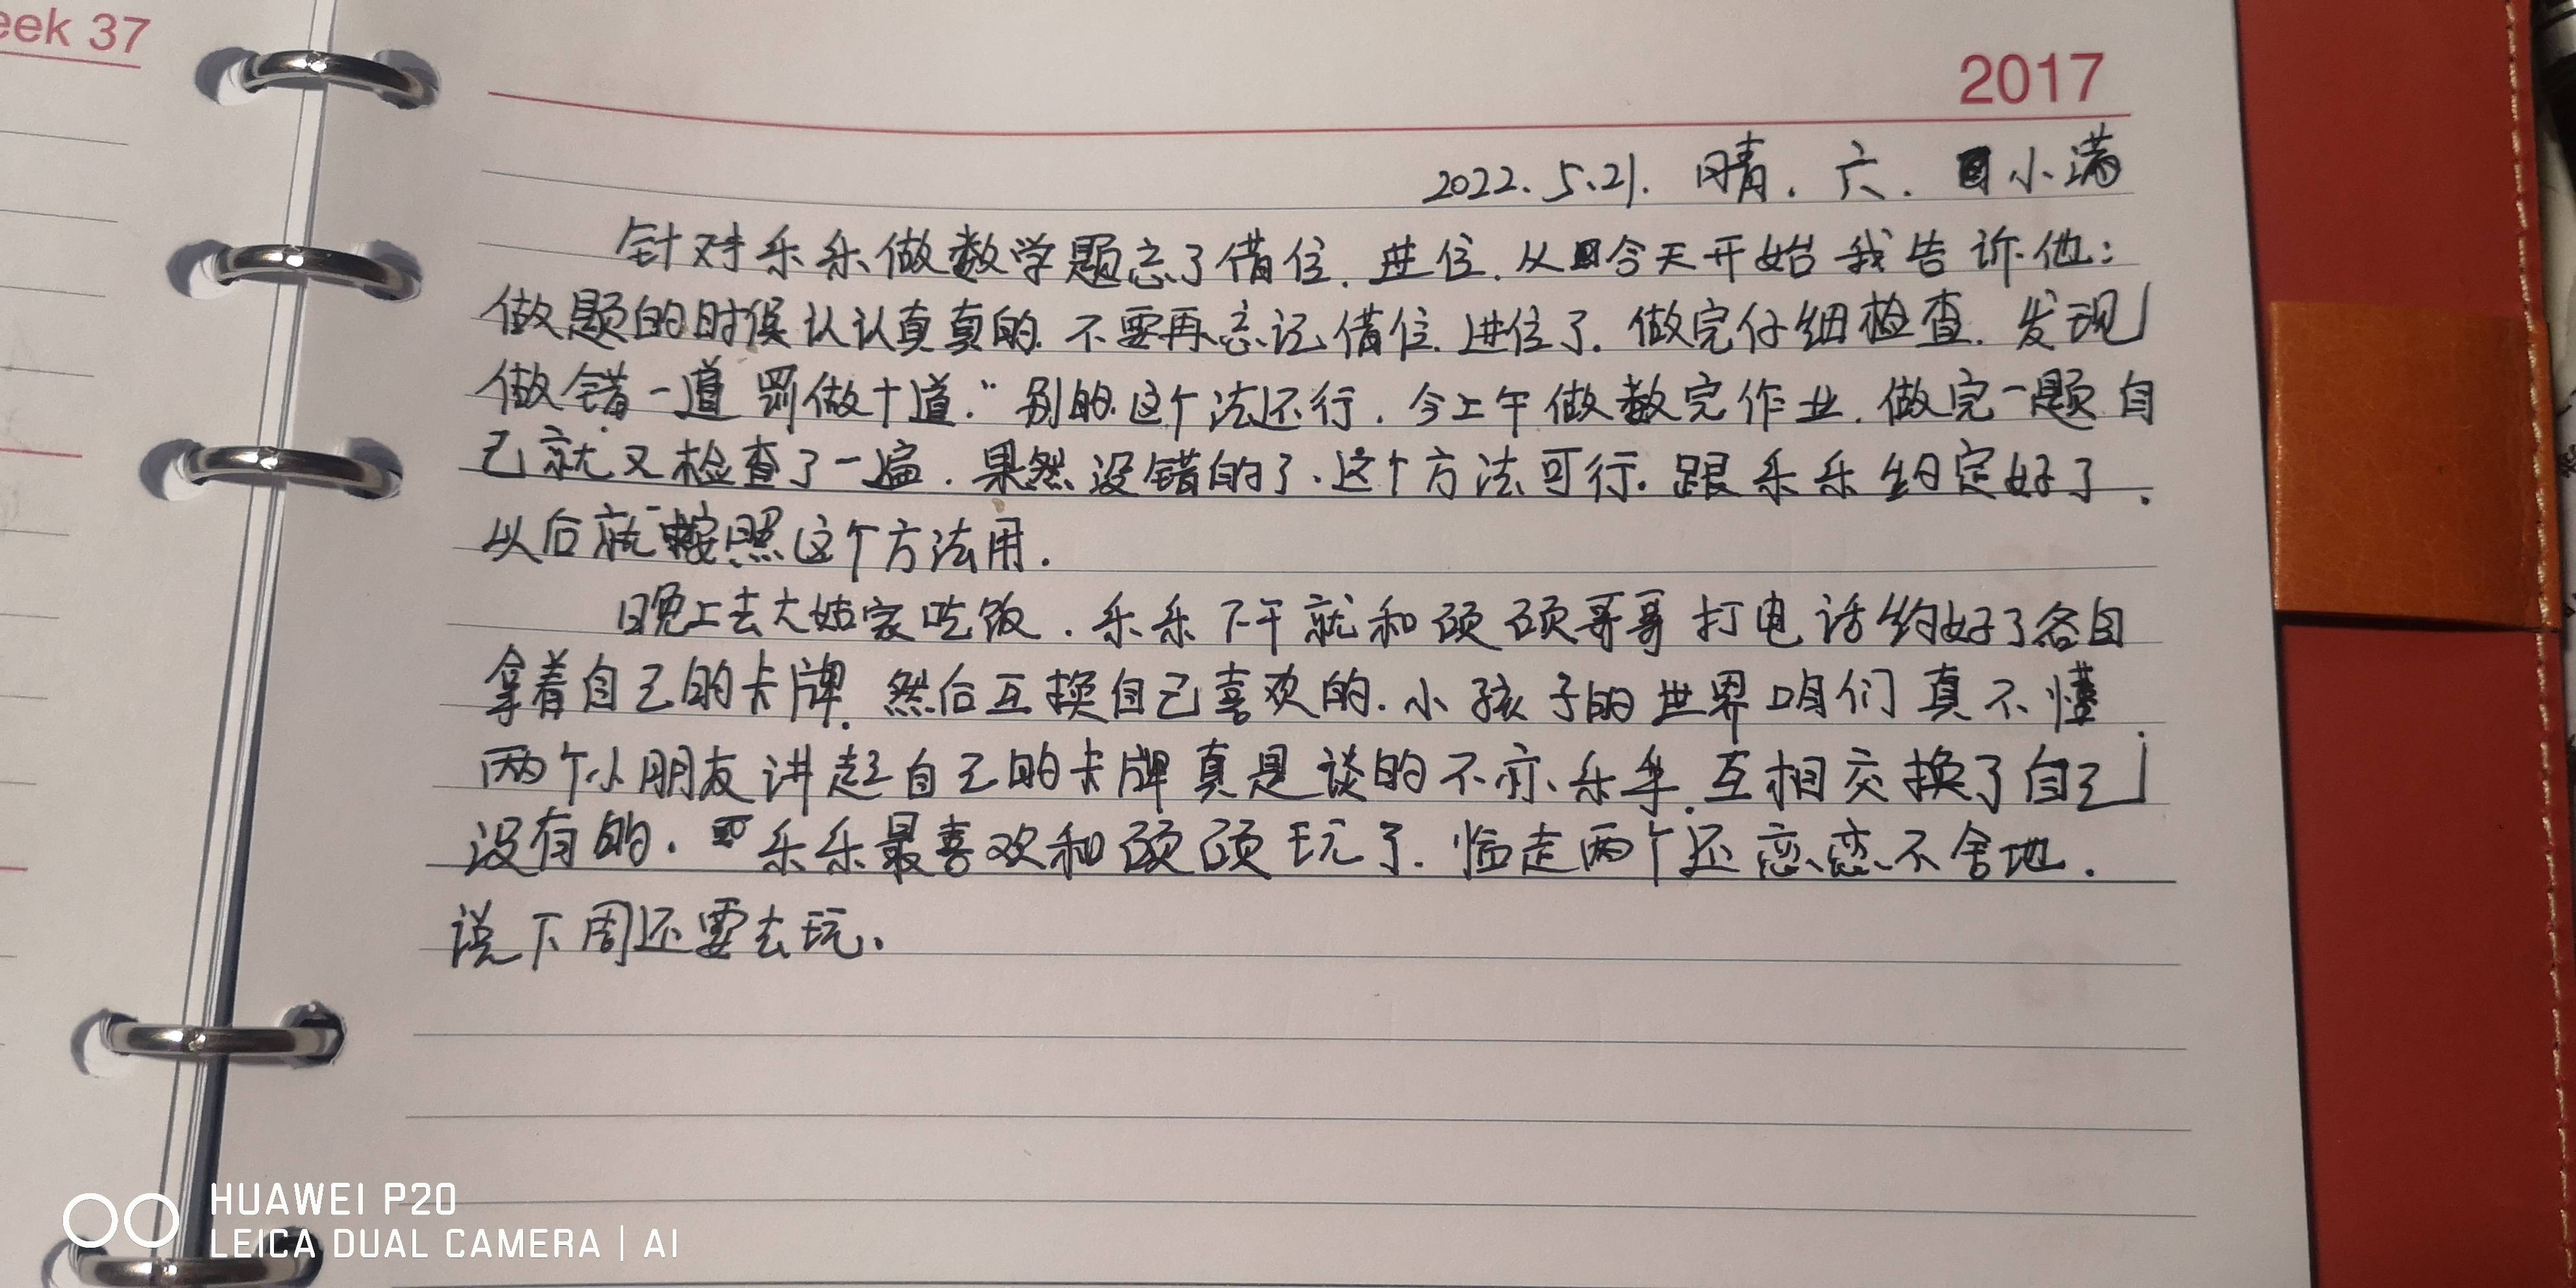 eek 37
2017
2022.5.21. 晴. 六. 小满
针对乐乐做数学题忘了借位.进位.从今天开始我告诉他:
做题的时候认认真真的.不要再忘记借位.进位了.做完仔细检查.发现
做错一道罚做十道."别的.这个法还行.今上午做数完作业.做完一题自
己就又检查了一遍.果然没错的了.这个方法可行.跟乐乐约定好了.
以后就按照这个方法用.
晚上去大姑家吃饭.乐乐下午就和硕硕哥哥打电话约好了各自
拿着自己的卡牌.然后互换自己喜欢的.小孩子的世界咱们真不懂.
两个小朋友讲起自己的卡牌真是谈的不亦乐乎.互相交换了自己
没有的.乐乐最喜欢和硕硕玩了.临走两个还恋恋不舍地.
说下周还要去玩.
HUAWEI P20
LEICA DUAL CAMERA | AI